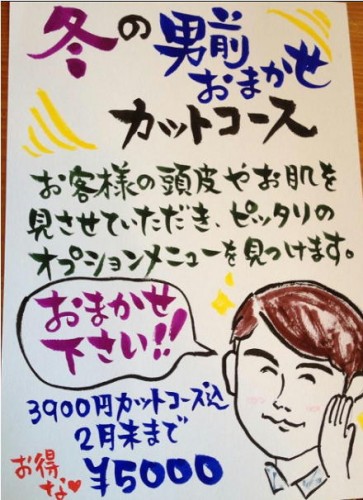 冬の男前
おまかせ
カットコース
お客様の頭皮やお肌を
見させていただき、ピッタリの
オプションメニューを見つけます。
おまかせ
下さい!!
3900円カットコース込
2月末まで
お得な♥
¥5000